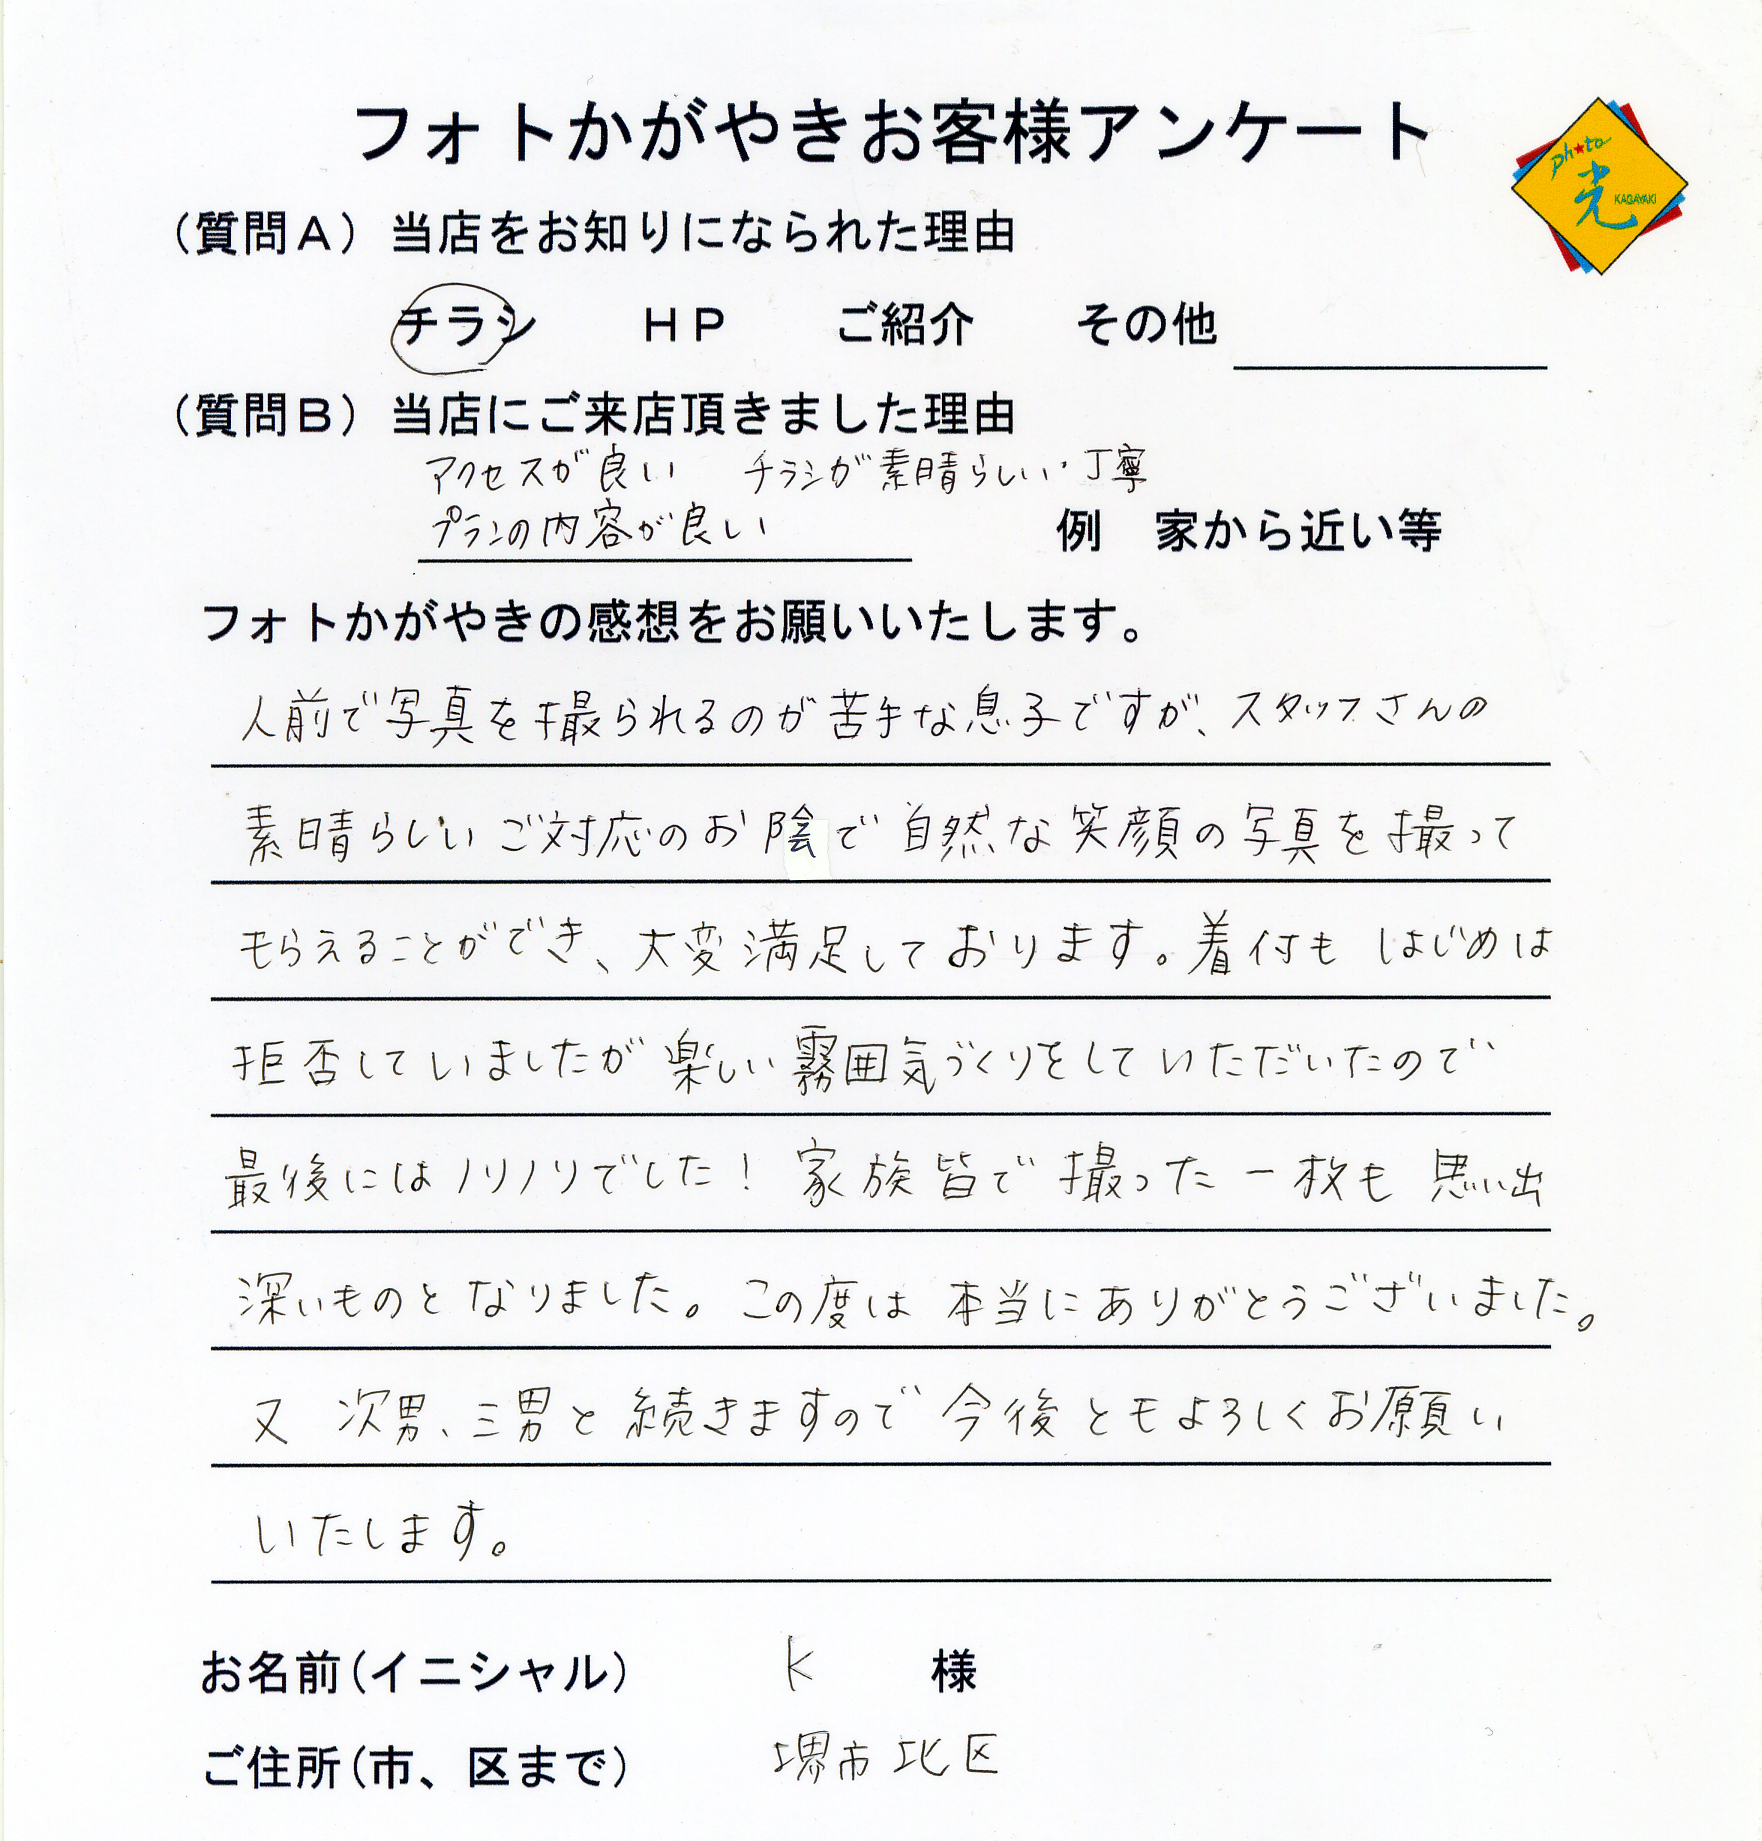 フォトかがやきお客様アンケート
photo
光
KAGAYAKI
（質問A）当店をお知りになられた理由
チラシ　HP　ご紹介　その他
（質問B）当店にご来店頂きました理由
アクセスが良い　チラシが素晴らしい・丁寧
プランの内容が良い
例　家から近い等
フォトかがやきの感想をお願いいたします。
人前で写真を撮られるのが苦手な息子ですが、スタッフさんの
素晴らしいご対応のお陰で自然な笑顔の写真を撮って
もらえることができ、大変満足しております。着付も はじめは
拒否していましたが楽しい霧囲気づくりをしていただいたので
最後にはノリノリでした！ 家族皆で撮った一枚も 思い出
深いものとなりました。この度は 本当にありがとうございました。
又 次男、三男と続きますので 今後ともよろしくお願い
いたします。
お名前(イニシャル)　K　様
ご住所(市、区まで)　堺市北区